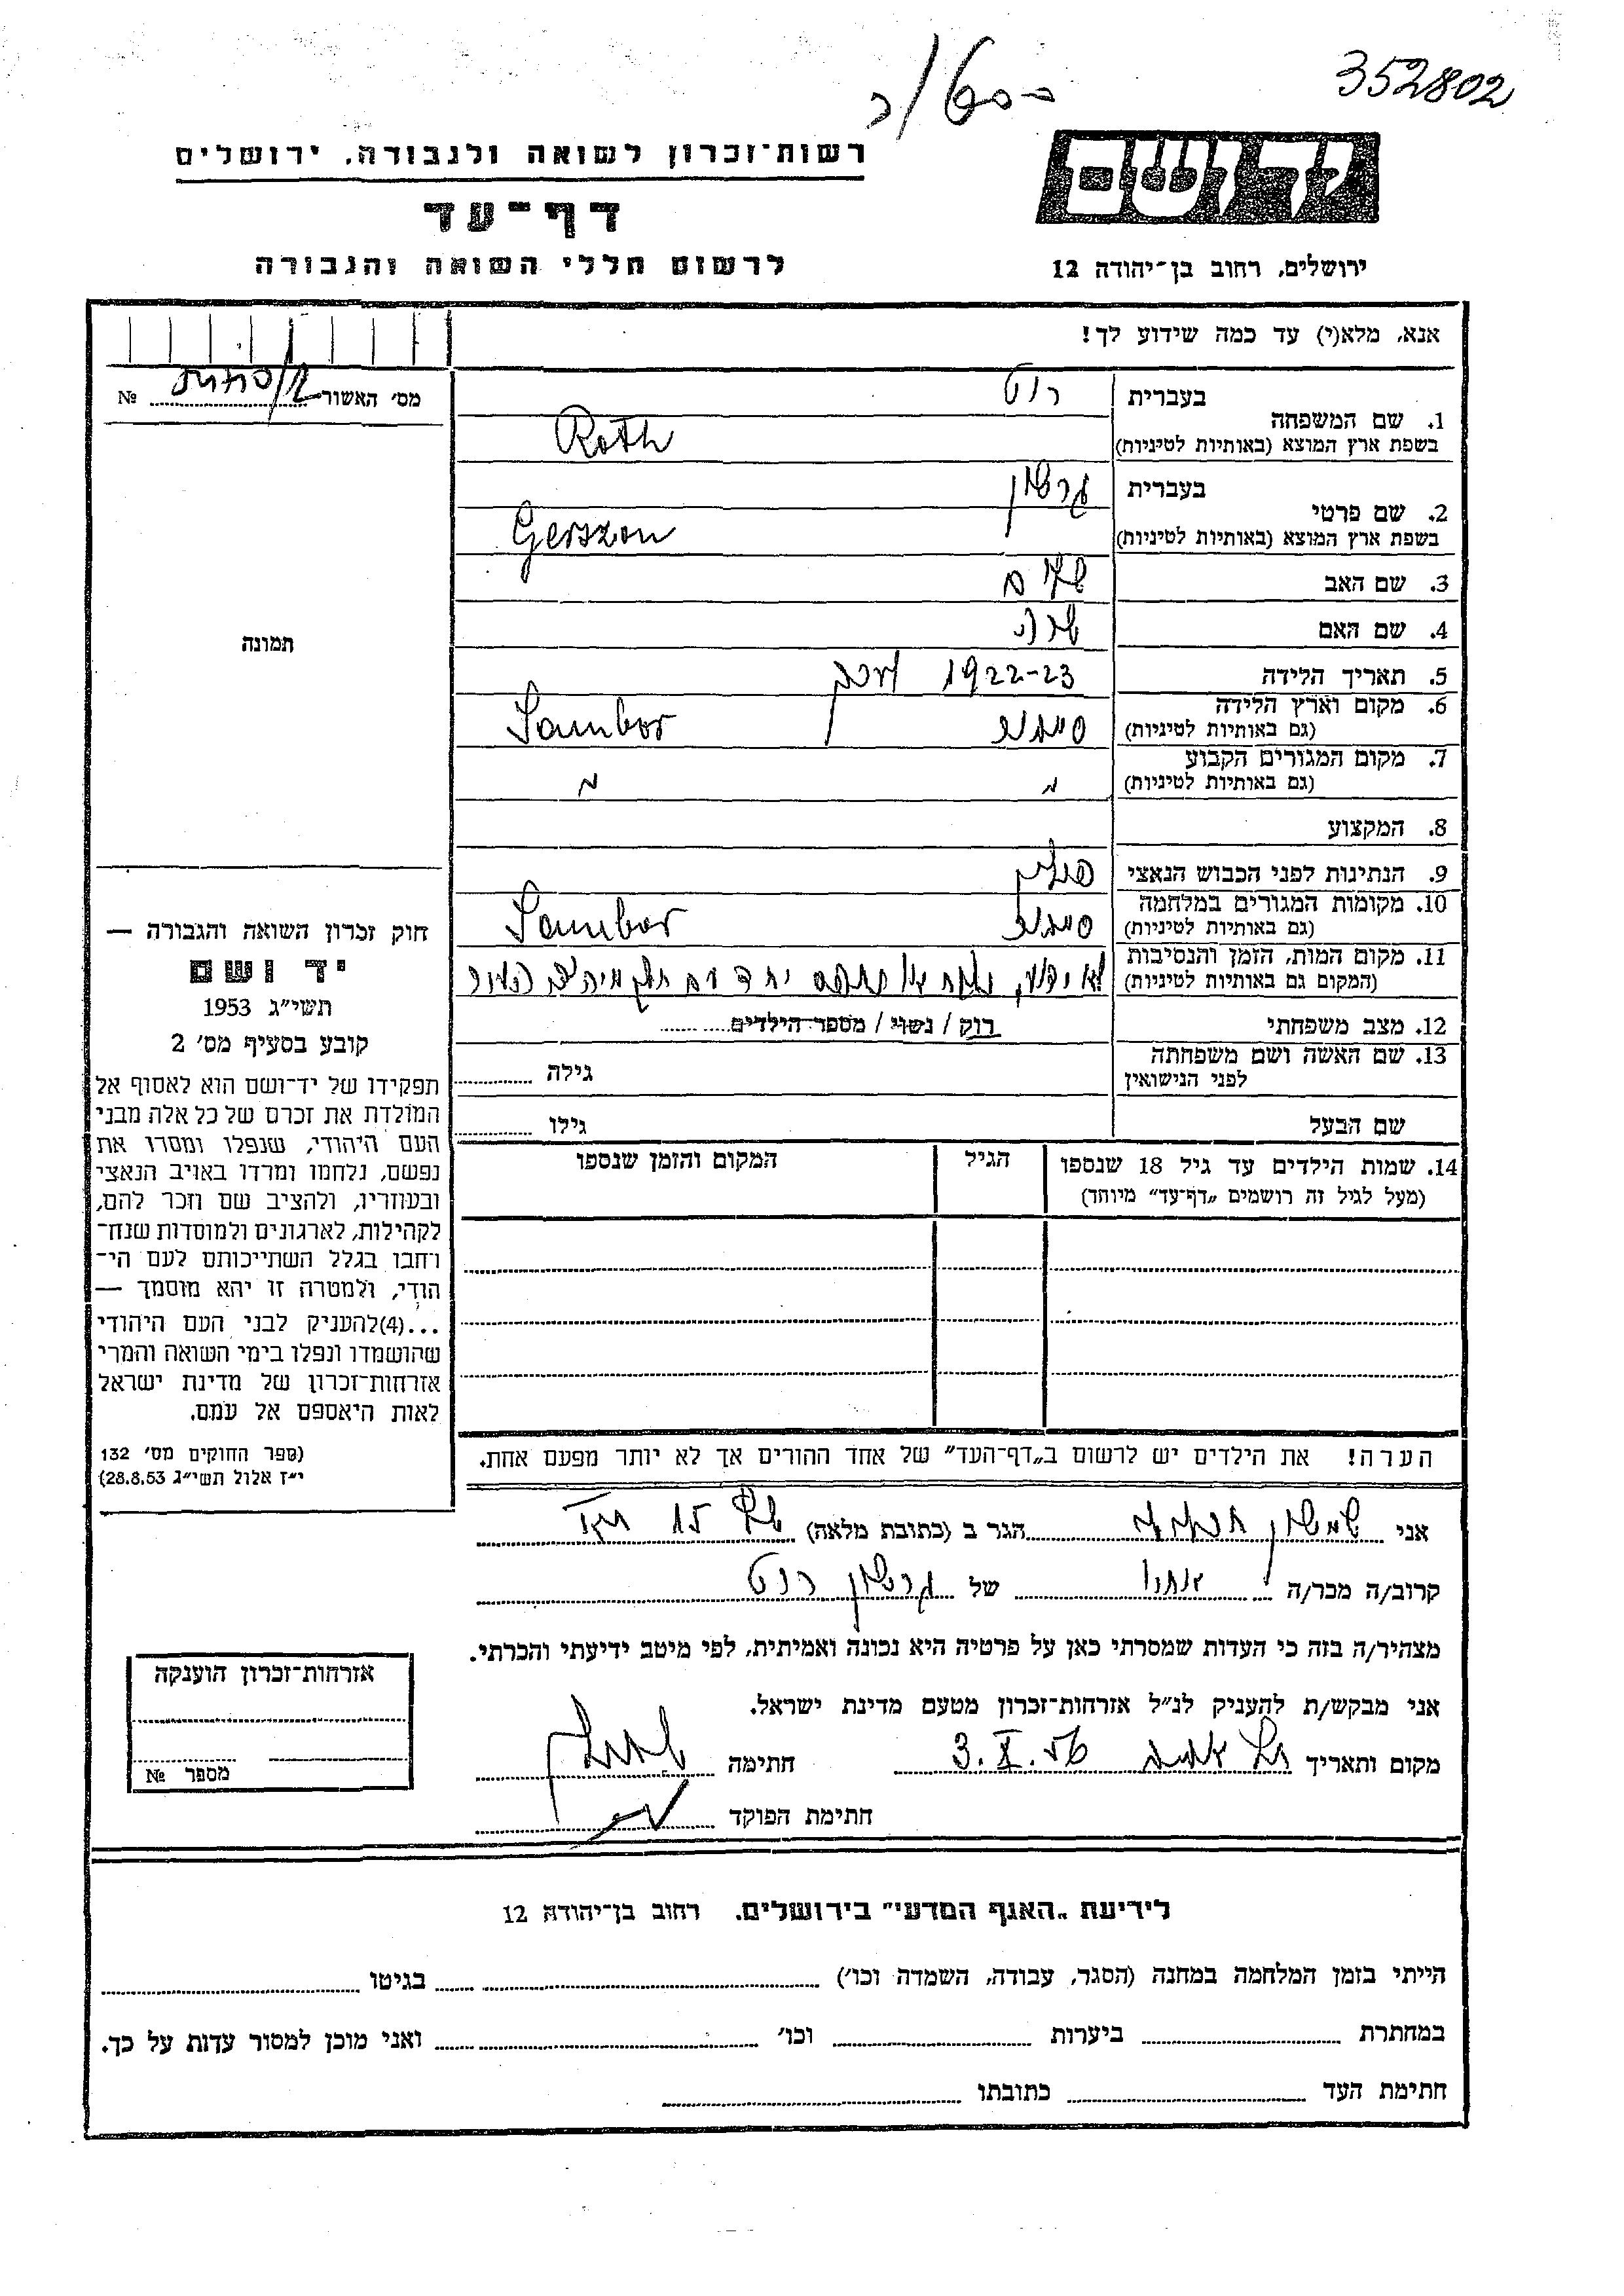 352802
רשות־זכרון לשואה ולגבורה, ירושלים
יד ושם
דף־עד
לרשום חללי השואה והגבורה
ירושלים, רחוב בן־יהודה 12
אנא, מלא(י) עד כמה שידוע לך!
מס׳ האשור № 
1. שם המשפחה
בעברית רוט
בשפת ארץ המוצא (באותיות לטיניות) Roth
2. שם פרטי
בעברית גרשון
בשפת ארץ המוצא (באותיות לטיניות) Gerszon
3. שם האב
4. שם האם שרה
5. תאריך הלידה 1922-23
6. מקום וארץ הלידה
(גם באותיות לטיניות) סמבור Sambor
7. מקום המגורים הקבוע
(גם באותיות לטיניות)
8. המקצוע
9. הנתינות לפני הכבוש הנאצי פולין
10. מקומות המגורים במלחמה
(גם באותיות לטיניות) סמבור Sambor
11. מקום המות, הזמן והנסיבות
(המקום גם באותיות לטיניות) לא ידוע, יחד עם
12. מצב משפחתי רוק / נשוי / מספר הילדים
13. שם האשה ושם משפחתה
לפני הנישואין גילה
שם הבעל גילו
14. שמות הילדים עד גיל 18 שנספו
(מעל לגיל זה רושמים „דף־עד״ מיוחד)
הגיל
המקום והזמן שנספו
הערה! את הילדים יש לרשום ב„דף־העד״ של אחד ההורים אך לא יותר מפעם אחת.
תמונה
חוק זכרון השואה והגבורה —
יד ושם
תשי״ג 1953
קובע בסעיף מס׳ 2
תפקידו של יד־ושם הוא לאסוף אל
המולדת את זכרם של כל אלה מבני
העם היהודי, שנפלו ומסרו את
נפשם, נלחמו ומרדו באויב הנאצי
ובעוזריו, ולהציב שם וזכר להם,
לקהילות, לארגונים ולמוסדות שנח־
רחבו בגלל השתייכותם לעם הי־
הודי, ולמטרה זו יהא מוסמך —
...(4)להעניק לבני העם היהודי
שהושמדו ונפלו בימי השואה והמרי
אזרחות־זכרון של מדינת ישראל
לאות היאספם אל עמם.
(ספר החוקים מס׳ 132
י״ז אלול תשי״ג 28.8.53)
אני שמשון הגר ב (כתובת מלאה)
קרוב/ה מכר/ה של גרשון רוט
מצהיר/ה בזה כי העדות שמסרתי כאן על פרטיה היא נכונה ואמיתית, לפי מיטב ידיעתי והכרתי.
אני מבקש/ת להעניק לנ״ל אזרחות־זכרון מטעם מדינת ישראל.
מקום ותאריך תל אביב 3.X.56 חתימה
חתימת הפוקד
אזרחות־זכרון הוענקה
מספר №
לידיעת „האגף המדעי״ בירושלים. רחוב בן־יהודה 12
הייתי בזמן המלחמה במחנה (הסגר, עבודה, השמדה וכו׳) בגיטו
במחתרת ביערות וכו׳ ואני מוכן למסור עדות על כך.
חתימת העד כתובתו